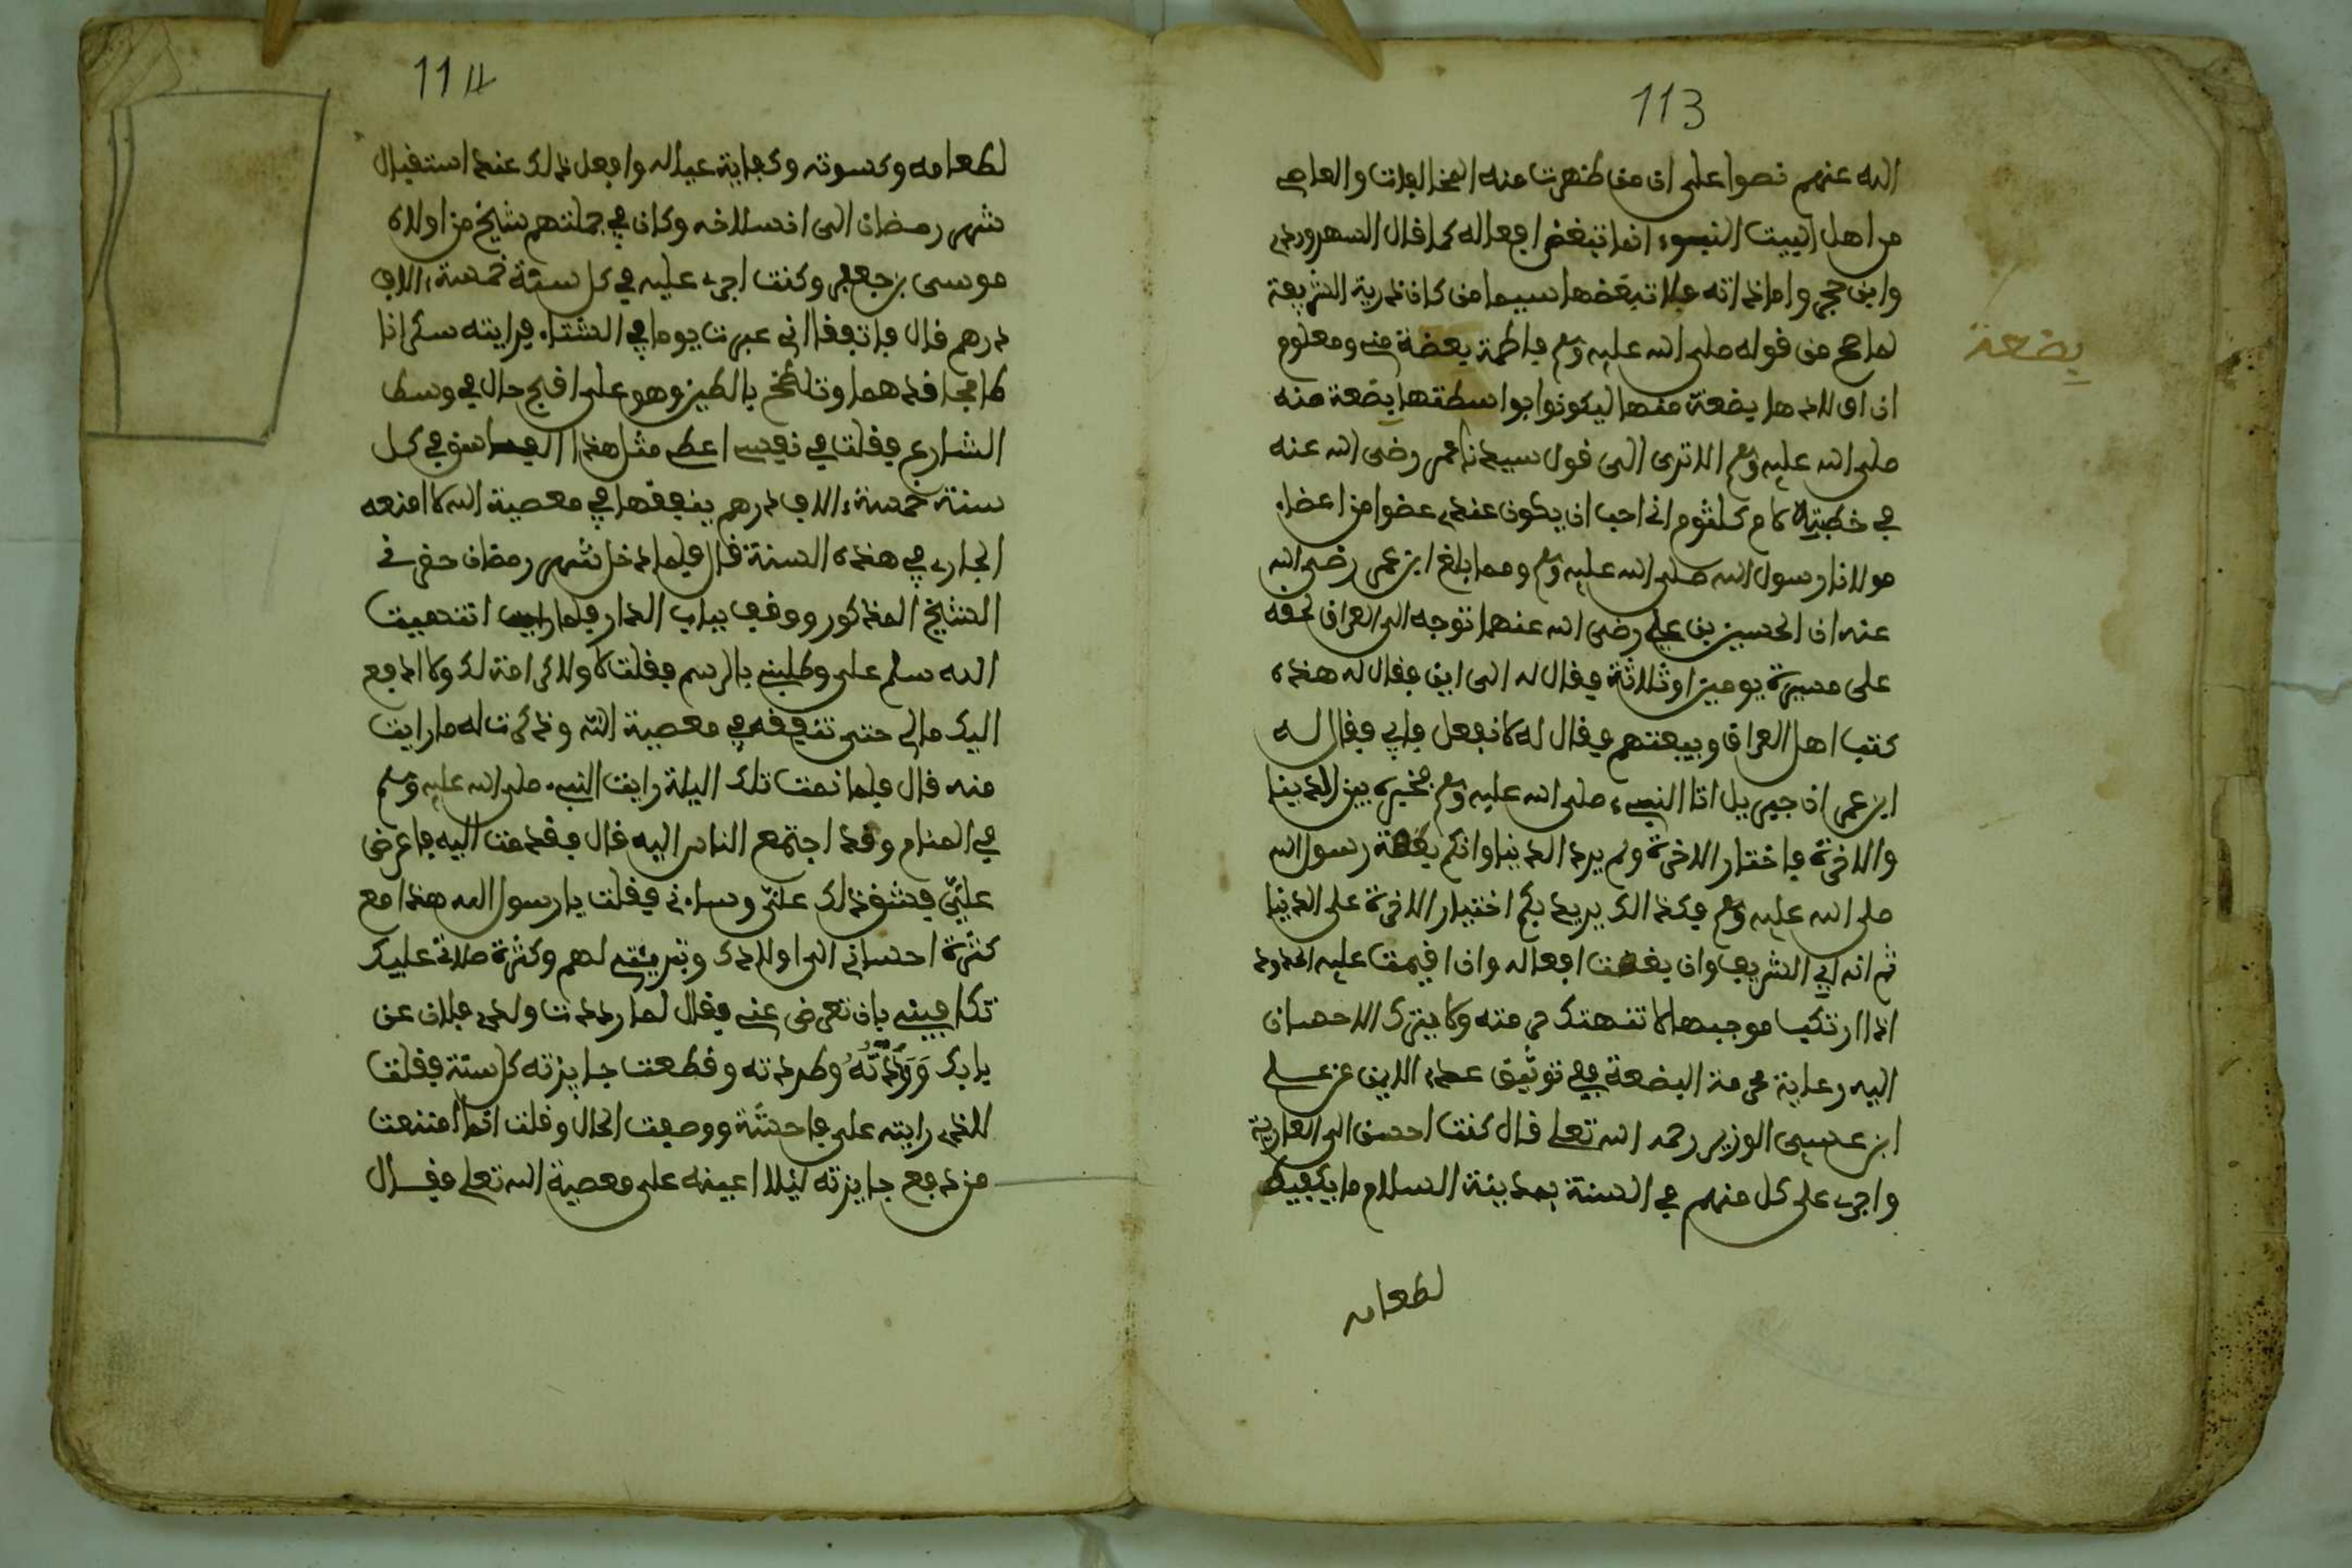 113
الله عنهم نصوا على ان من ظهرت منه المخالفات والمعاصي
من اهل البيت النبوي انما تبغض افعاله كما قال السهروردي
وابن حجر واما ذاته فلا تبغضها سيما من كان ذرية الشريفة
لما صح من قوله صلى الله عليه وسلم فاطمة بضعة مني ومعلوم
بضعة
ان اولادها بضعة منها ليكونوا بواسطتها بضعة منه
صلى الله عليه وسلم الا ترى الى قول سيدنا عمر رضي الله عنه
في خطبته لام كلثوم اني احب ان يكون عندي عضوا من اعضاء
مولانا رسول الله صلى الله عليه وسلم ومما بلغ ابن عمر رضي الله
عنه ان الحسين بن علي رضي الله عنهما توجه الى العراق لحقه
على مسيرة يومين او ثلاثة فقال له الى اين فقال له هذه
كتب اهل العراق وبيعتهم فقال له لا تفعل فابى فقال له
ابن عمر ان جبريل اتا النبيء صلى الله عليه وسلم فخيره بين الدنيا
والاخرة فاختار الاخرة ولم يرد الدنيا وانكم بضعة رسول الله
صلى الله عليه وسلم فكذالك يريد بكم اختيار الاخرة على الدنيا
ثم انه اي الشريف وان بغضت افعاله وان اقيمت عليه الحدود
اذا ارتكب موجبها لا تنهتك حرمته ولا يترك الاحسان
اليه رعاية لحرمة البضعة ففي توثيق عرى الايمن عن علي
ابن عيسى الوزير رحمه الله تعلى قال كنت احسن الى العلوية
واجري على كل منهم في السنة بمدينة السلام ما يكفيه
لطعامه
114
لطعامه وكسوته وكفاية عياله وافعل ذلك عند استقبال
شهر رمضان الى انسلاخه وكان في جملتهم شيخ من اولاد
موسى بن جعفر وكنت اجري عليه في كل سنة خمسة الاف
درهم قال فاتفق اني عبرت يوما في الشتاء فرايته سكرانا
طافحا قد هما وتلطخ بالطين وهو على اقبح حال في وسط
الشارع فقلت في نفسي اعطي مثل هذا الفاسق في كل
سنة خمسة الاف درهم ينفقها في معصية الله لامنعه
الجاري في هذه السنة قال فلما دخل شهر رمضان حضرني
الشيخ المذكور ووقف بباب الدار فلما انتهيت
اليه سلم علي وطلبني بالرسم فقلت لا ولا كرامة لك ولا ادفع
اليك مالي حتى تنفقه في معصية الله وذكرت له ما رايت
منه قال فلما نمت تلك اليلة رايت النبيء صلى الله عليه وسلم
في المنام وقد اجتمع الناس اليه قال فقدمت اليه فاعرض
عليّ فشق ذلك علي وساءني فقلت يا رسول الله هذا مع
كثرة احساني الى اولادك وبري لهم وكثرة صلاتي عليك
تكافيني بان تعرض عني فقال لما رددت ولدي فلان عن
بابك وطردته وقطعت جايزته كل سنة فقلت
للذي رايته على فاحشة ووصفت الحال وقلت انما امتنعت
من دفع جايزته ليلا اعينه على معصية الله تعلى فقال